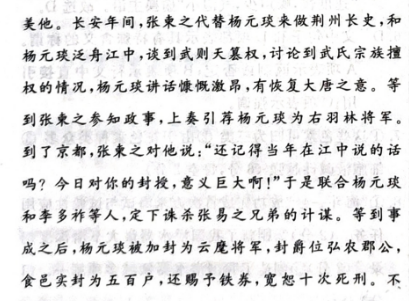 美他。长安年间,张柬之代替杨元琰来做荆州长史,和
杨元琰泛舟江中,谈到武则天篡权,讨论到武氏宗族擅
权的情况,杨元琰讲话慷慨激昂,有恢复大唐之意。等
到张柬之参知政事,上奏引荐杨元琰为右羽林将军。
到了京都,张柬之对他说:“还记得当年在江中说的话
吗?今日对你的封授,意义巨大啊!”于是联合杨元琰
和李多祚等人,定下诛杀张易之兄弟的计谋。等到事
成之后,杨元琰被加封为云麾将军,封爵位弘农郡公,
食邑实封为五百户,还赐予铁券,宽恕十次死刑。不